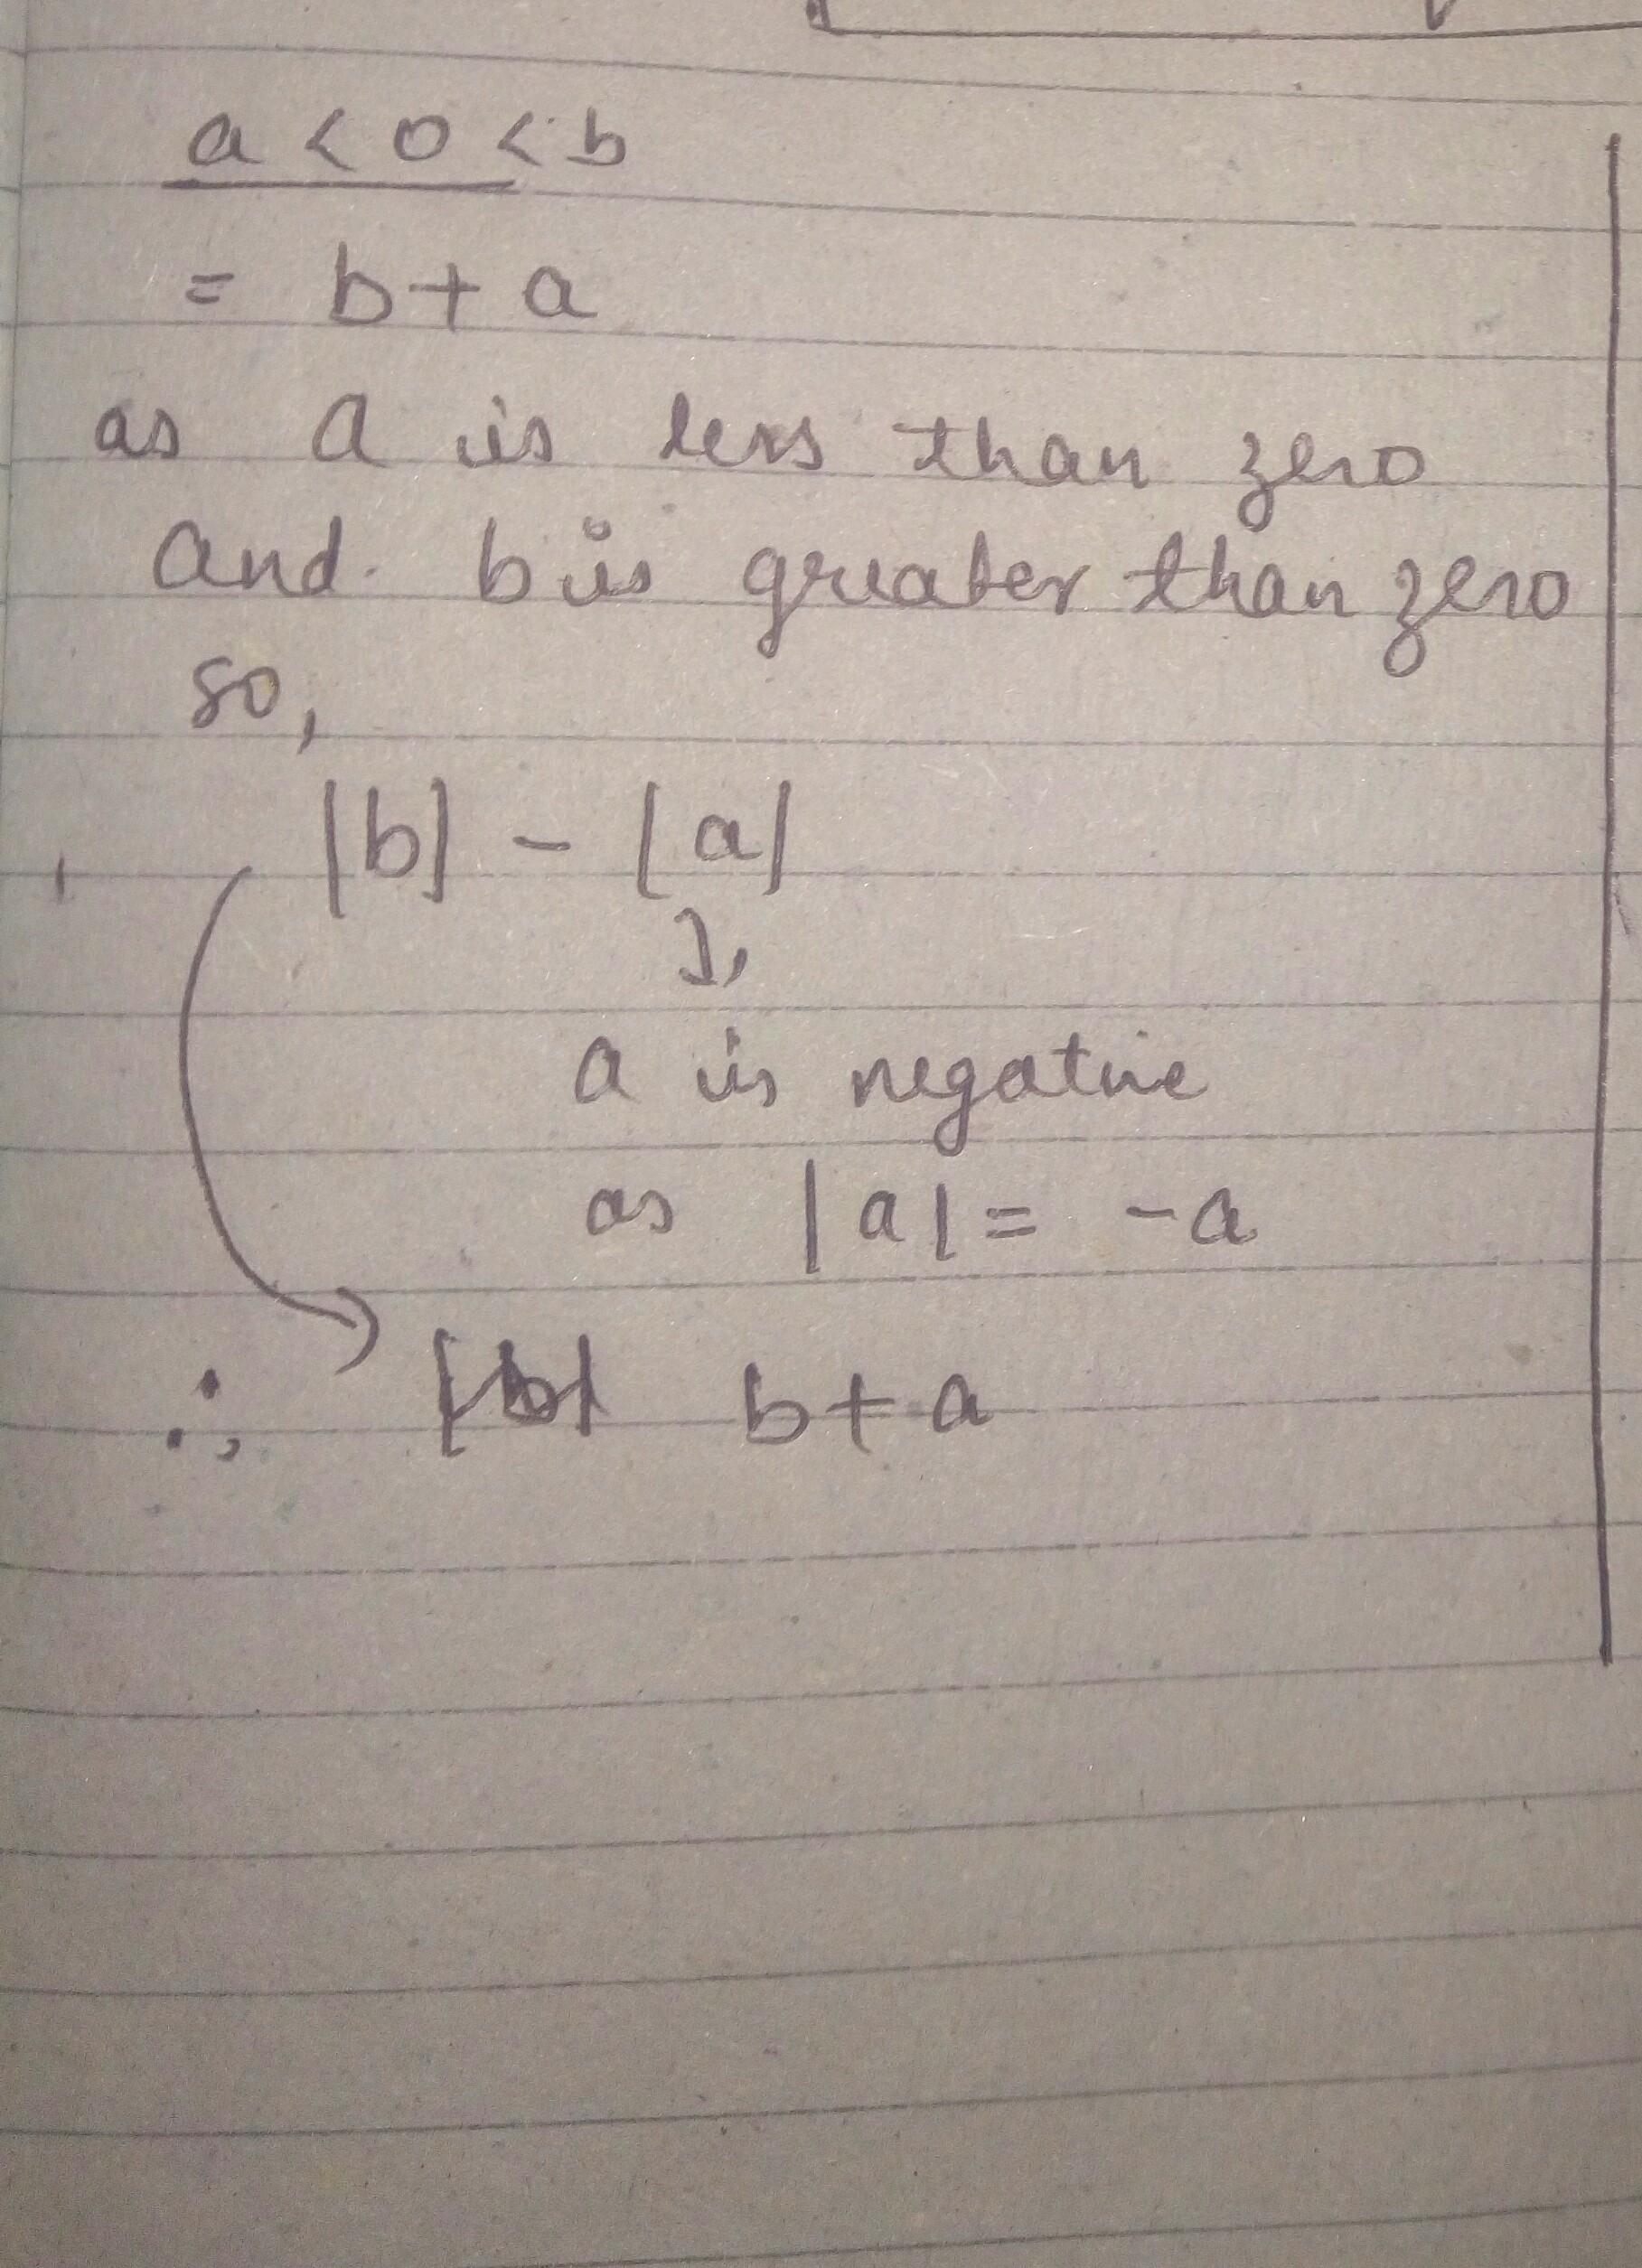 a < 0 < b
= b + a
as a is less than zero
and b is greater than zero
so,
|b| - |a|
a is negative
as |a| = -a
∴ b + a